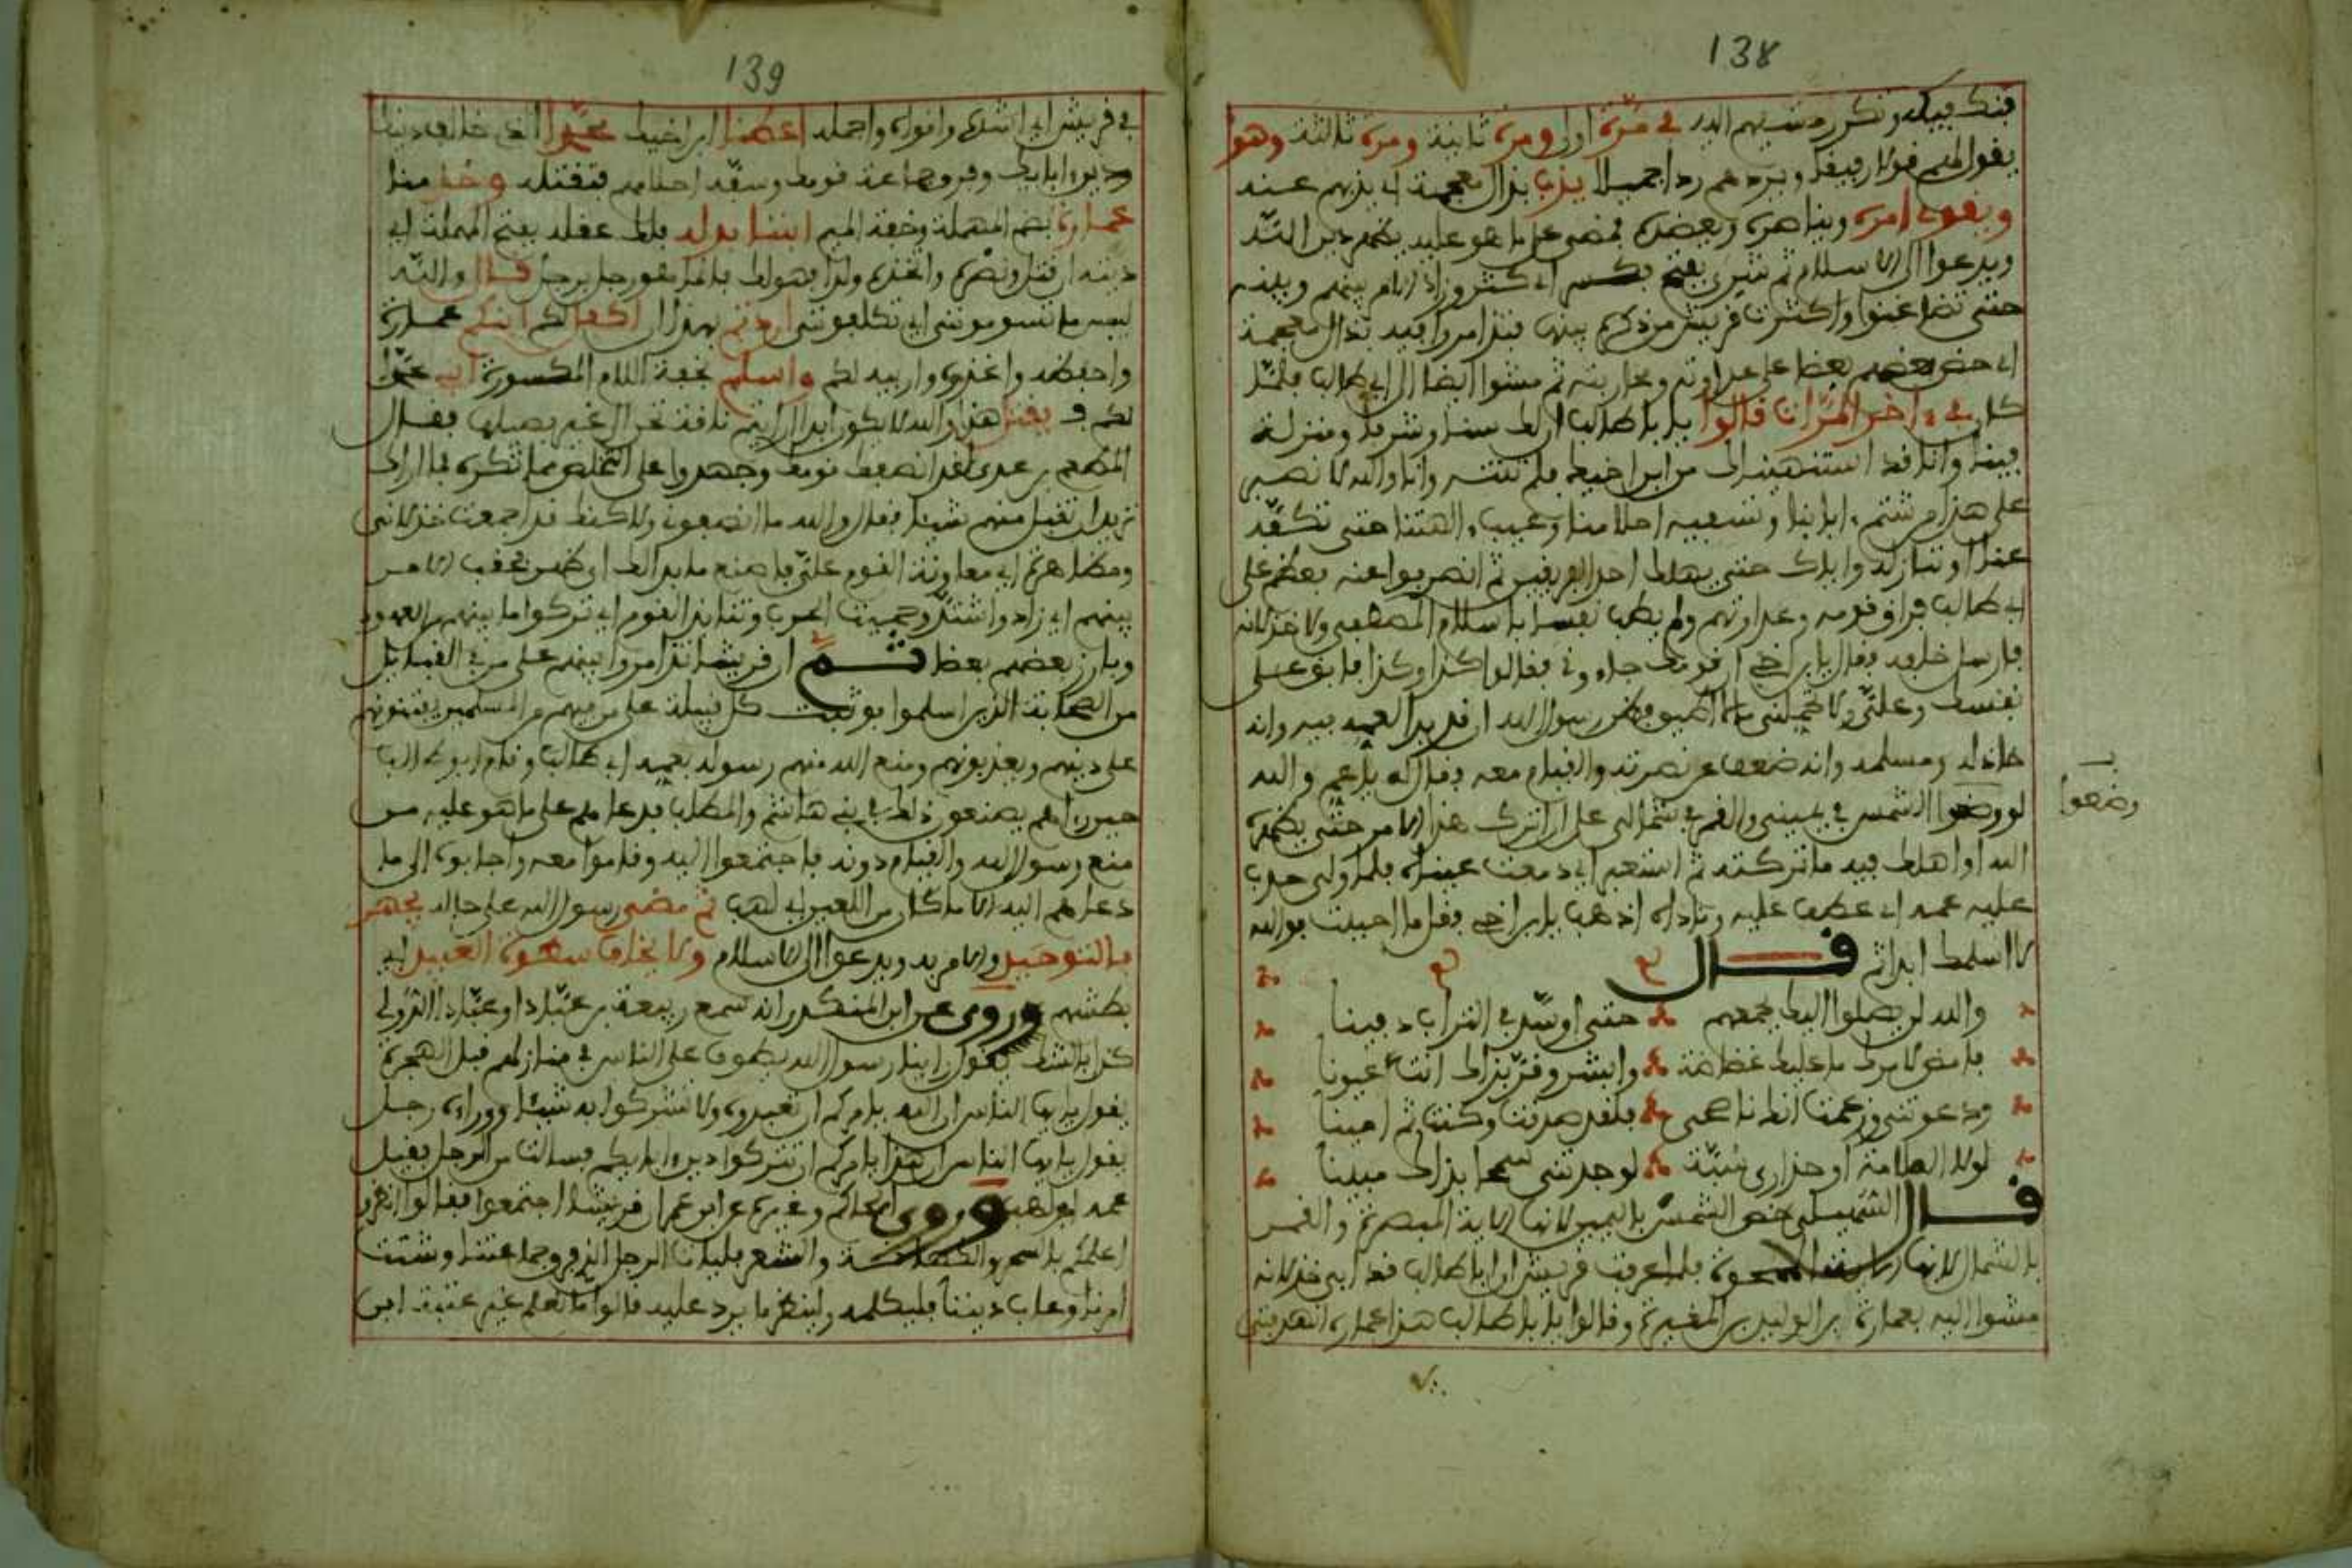 138
فنكفيكه وتكرر مشيهم اليه في مرة اولى ومرة ثانية ومرة ثالثة وهو
يقول لهم قولا رفيقا ويردهم ردا جميلا يذب بذال معجمة اي يذبهم عنه
ويقوي امره ويناصره ويعضده فمضى على ما هو عليه يظهر دين الله
ويدعوا الى الاسلام ثم شري بفتح فكسر اي كثر وزاد الامر بينهم وبينه
حتى تضاغنوا واكثرت قريش من ذكره بينها فتذامروا فيه بذال معجمة
اي حض بعضهم بعضا على عداوته ومحاربته ثم مشوا ايضا الى ابي طالب
كل في ءاخر المرات قالوا يا ابا طالب ان لك سنا وشرفا ومنزلة
فينا وانا قد استنهيناك من ابن اخيك فلم تنته وانا والله لا نصبر
على هذا من شتم ءابائنا وتسفيه احلامنا وعيب ءالهتنا حتى تكفه
عنا او ننازله واياك حتى يهلك احد الفريقين ثم انصرفوا عنه فعظم على
ابي طالب فراق قومه وعداوتهم ولم يطب نفسا باسلام المصطفى ولا خذلانه
فارسل خلفه فقال يا ابن اخي ان قومك جاءوني فقالوا كذا وكذا فابق على
نفسك وعلي ولا تحملني ما لا اطيق فظن رسول الله ان قد بدا لعمه فيه وانه
خاذله ومسلمه وانه ضعف عن نصرته والقيام معه فقال له يا عم والله
لو وضعوا الشمس في يميني والقمر في شمالي على ان اترك هذا الامر حتى يظهره
الله او اهلك فيه ما تركته ثم استعبر اي دمعت عيناه فلما ولى حدب
عليه عمه اي عطف عليه وناداه اذهب يا ابن اخي فقل ما احببت فوالله
لا اسلمك ابدا ثم قال
والله لن يصلوا اليك بجمعهم حتى اوسد في التراب دفينا
فامض لامرك ما عليك غضاضة وابشر وقر بذاك انت عيونا
ودعوتني وزعمت انك ناصحي فلقد صدقت وكنت ثم امينا
لولا الملامة او حذاري سبة لوجدتني سمحا بذاك مبينا
قال السهيلي خص الشمس باليمين لانها الاية المبصرة والقمر
بالشمال لانها الاية الممحوة فلما عرفت قريش ان ابا طالب قد ابى خذلانه
مشوا اليه بعمارة بن الوليد بن المغيرة وقالوا يا ابا طالب هذا عمارة انهد فتى
وضعوا
139
في قريش اي اشده وانواه واجمله اعطنا ابن اخيك محمدا الذي خالف دينك
ودين ءابائك وفرق جماعة قومك وسفه احلامهم فنقتله وخذ منا
عمارة بضم المهملة وخفة الميم ابننا بدله فلك عقله بفتح المهملة اي
ديته ان قتل ونصره واتخذه ولدا فهو لك فانما هو رجل برجل قال والله
لبيس ما تسومونني اي تكلفونني اردتم بهذا ان اكفل لكم ابنكم عمارة
واحفظه واغذوه واربيه لكم واسلم بخفة اللام المكسورة ابني محمدا
لكم فيقتل هذا والله لا يكون ابدا ارايتم ناقة تحن الى غير فصيلها فقال
المطعم بن عدي لقد انصفك قومك وجهدوا على التخلص مما تكره فما اراك
تريد ان تقبل منهم شيئا فقال والله ما انصفوني ولاكنك قد اجمعت خذلاني
ومظاهرة اي معاونة القوم علي فاصنع ما بدا لك اي ظهر فحقب الامر
بينهم اي زاد واشتد وحميت الحرب وتنابذ القوم اي تركوا ما بينهم من العهود
وبارز بعضهم بعضا ثم ان قريشا تذامروا بينهم على من في القبائل
من الصحابة الذين اسلموا فوثبت كل قبيلة على من فيهم من المسلمين يفتنونهم
على دينهم ويعذبونهم ومنع الله منهم رسوله بعمه ابي طالب وقام ابو طالب
حين راهم يصنعون ذلك في بني هاشم والمطلب فدعاهم على ما هو عليه من
منع رسول الله والقيام دونه فاجتمعوا اليه وقاموا معه واجابوه الى ما
دعاهم اليه الا ما كان من اللعين ابي لهب ثم مضى رسول الله على حاله يجهر
بالتوحيد والامر به ويدعوا الى الاسلام ولا يخاف سطوة العبيد اي
بطشهم وروي عن ابن المنكدر انه سمع ربيعة بن عباد او عباد الدؤلي
كذا بالشك يقول راينا رسول الله يطوف على الناس في منازلهم قبل الهجرة
يقول يايها الناس ان الله يامركم ان تعبدوه ولا تشركوا به شيئا ووراءه رجل
يقول يايها الناس ان هذا يامركم ان تتركوا دين ءابائكم فسالت من الرجل فقيل
عمه ابو لهب وروى الحاكم وغيره عن ابن عمر ان قريشا اجتمعوا فقالوا انظروا
اعلمكم بالسحر والكهانة والشعر فليات الرجل الذي فرق جماعتنا وشتت
امرنا وعاب ديننا فليكلمه ولينظر ما يرد عليه قالوا ما نعلم غير عتبة ابن